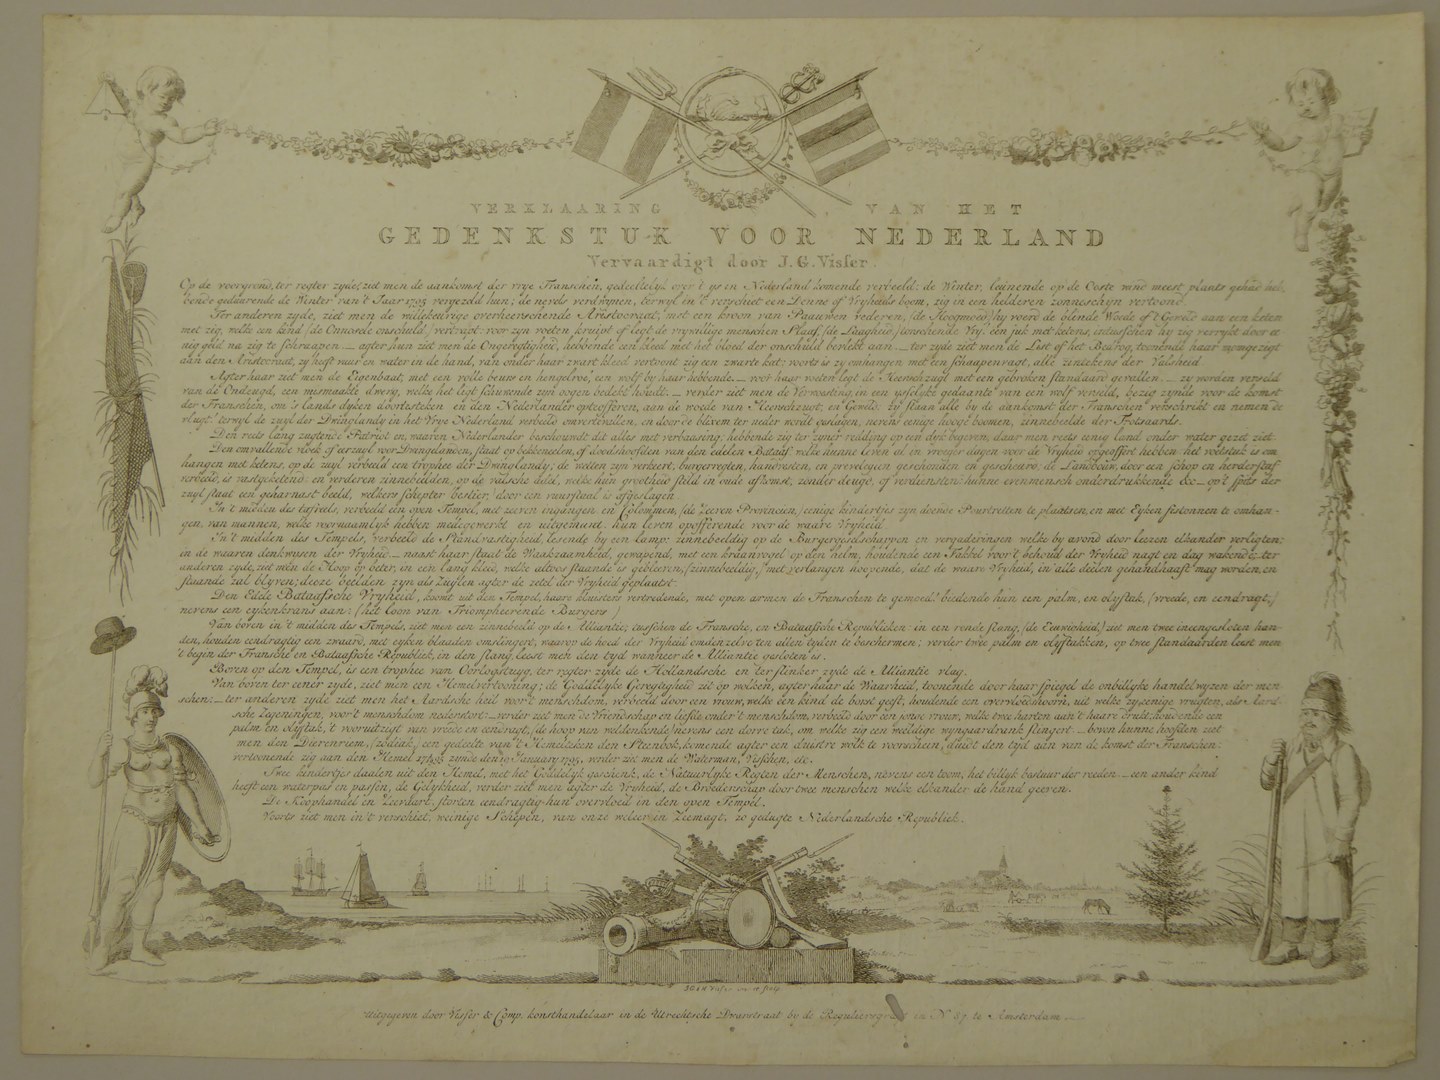 VERKLAARING VAN HET
GEDENKSTUK VOOR NEDERLAND
Vervaardigt door J. G. Visser.
Op de voorgrond, ter regter zyde, ziet men de aankomst der vrye Franschen, gedeeltelyk over 't ys en Nederland komende verbeeld: de Winter, leunende op de Ooste wind meest plants gehad heb,
bende geduurende de Winter van 't Jaar 1795 verzeld hun; de nevels verdwynen, terwyl in 't verschiet een Denne of Vryheids boom, zig in een helderen zonneschyn vertoond.
Ter anderen zyde, ziet men de willekeurige overheerschende Aristocraat, met een kroon van Paauwen vederen, (de Hoogmoed) hy voerd de blinde Woede of 't Geweld aan een keten
met zig, welke een kind (de Onnosele onschuld) vertrapt: voor zyn voeten kruipt of legt de vrywillige menschen Slaaf, (de Laagheid) torschende Vry, een juk met ketens, intusschen hy zig verrykt door et
uig geld na zig te schraapen. agter hun ziet men de Ongeregtigheid, hebbende een kleed met het bloed der onschuld bevlekt aan. ter zyde ziet men de List of het Bedrog, toonende haar momgezigt
aan den Aristocraat, zy heeft vuur en water in de hand, van onder haar zwart kleed vertoont zig een zwarte kat: voorts is zy omhangen met een schaapenvagt, alle zintekens der Valsheid
Agter haar ziet men de Eigenbaat, met een volle beurs en hengelroe, een wolf by haar hebbende. voor haar voeten legt de Heerschzugt met een gebroken standaard gevallen. zy worden verzeld
van de Ondeugd, een mismaakte dwerg, welke het ligt schuwende zyn oogen bedekt houdt. verder ziet men de Verwoesting, in een yselyke gedaante van een wolf verzeld, bezig zynde voor de komst
der Franschen, om 's lands dyken doortesteken en den Nederlander optzofferen, aan de woede van Heerschzugt, en Geweld. hy staan alle by de aankomst der Franschen verschrikt en nemen de
vlugt: terwyl de zuyl der Dwinglandy in het Vrye Nederland verbeeld omvertuimelen, en door de blixem ter neder wordt geslagen, nevens eenige hooge boomen, zinnebeelde der Trotsaards.
Den reets lang zugtende Patriot en waaren Nederlander beschouwdt dit alles met verbaasing; hebbende zig ter zyner redding op een dyk begeven, daar men reets eenig land onder water gezet ziet.
Den omvallende vloek of verzugt voor Dwingelanden, staat op bekkeneelen of doodshoofden van den edelen Bataaf welke hunne leven al in vroeger dagen voor de Vryheid opgeoffert hebben. het voetstuk is om
hangen met ketens, op de zuyl verbeeld een trophee der Dwinglandy; de wetten zyn verkeert, burgerregten, handvesten, en previlegien geschonden en gescheurd, de Landbouw, door een schop en herderstaf
verbeeld, is vastgeketend: en verderen zinnebeelden, op de valsche adel, welke hun grootheid steld in oude afkomst, zonder deugd, of verdiensten: hunne evenmensch onderdrukkende &c op 't spits der
zuyl staat een geharnast beeld, welkers schepter bestier, door een vuurstaal is afgeslagen
In 't midden des tafreels, verbeeld een open Tempel, met zeeven ingangen, en Colommen, (de Zeeven Provincien,) eenige kindertjes zyn doende Pourtretten te plaatsen, en met Eyken festonnen te omhan-
gen, van mannen, welke voornaamlyk hebben medegewerkt en uitgemunt, hun leven opofferende voor de waare Vryheid.
In 't midden des Tempels, verbeeld de Standvastigheid, lesende by een lamp: zinnebeeldig op de Burgergeselschappen en vergaderingen welke by avond door leezen elkander verligten;
in de waaren denkwysen der Vryheid. naast haar staat de Waakzaamheid, gewapend, met een kraanvogel op den helm, houdende een Fakkel voor 't behoud der Vryheid nagt en dag wakende; ter
anderen zyde, ziet men de Hoop op beter, in een lang kleed, welke altoos staande is gebleven, (zinnebeeldig,) met verlangen hoopende, dat de waare Vryheid, in alle deelen gehandhaaft mag worden, en
staande zal blyven; deeze beelden zyn als Zuylen agter de zetel der Vryheid geplaatst.
Den Edele Bataafsche Vryheid, komt uit den Tempel, haare kluisters vertredende, met open armen de Franschen te gemoet: biedende hun een palm, en olyftak, (vreede, en eendragt,)
nevens een eykenkrans aan: (het loon van Triompheerende Burgers)
Van boven in 't midden des Tempels, ziet men een zinnebeeld op de Alliantie; tusschen de Fransche, en Bataafsche Republieken: in een ronde slang, (de Eeuwigheid,) ziet men twee ineengesloten han-
den, houden eendragtig een zwaard, met eyken blaaden omslingert, waarop de hoed der Vryheid omdenzelve ten allen tyden te beschermen; verder twee palm en olyftakken, op twee standaarden leest men
't begin der Fransche en Bataafsche Republiek, in den slang leest men den tyd wanneer de Alliantie gesloten is.
Boven op den Tempel, is een trophee van Oorlogstuyg, ter regter zyde de Hollandsche en ter slinker zyde de Alliantie vlag.
Van boven ter eener zyde, ziet men een Hemelvertooning; de Goddelyke Geregtigheid zit op wolken, agter haar de Waarheid, toonende door haar spiegel de onbillyke handelwyzen der men
schen: ter anderen zyde ziet men het Aardsche heil voor 't menschdom, verbeeld door een vrouw, welke een kind de borst geeft, houdende een overvloedshoorn, uit welke zy eenige vrugten, als Aard.
sche Zegeningen, voor 't menschdom nederstort: verder ziet men de Vriendschap en liefde onder 't menschdom, verbeeld door een jonge vrouw, welke twee harten aan 't haare drukt, houdende een
palm en olyftak, 't vooruitzigt van vreede en eendragt, (de hoop van weldenkende) nevens een dorre tak, om welke zig een weeldige wyngaardrank slingert. boven hunne hoofden ziet
men den Dierenriem, (zodiak,) een gedeelte van 't Hemelteken den Steenbok, komende agter een duistre wolk te voorschein, duidt den tyd aan van de komst der Franschen:
vertoonende zig aan den Hemel 1795, zynde den 19 January 1795, verder ziet men de Waterman, Visschen, etc.
Twee kindertjes daalen uit den Hemel, met het Goddelyk geschenk, de Natuurlyke Regten der Menschen, nevens een toom, het billyk bestuur der reeden. een ander kind
heeft een waterpas en passer, de Gelykheid, verder ziet men agter de Vryheid, de Broederschap door twee menschen welke elkander de hand geeven.
De Koophandel en Zeevaart, storten eendragtig hun overvloed in den open Tempel.
Voorts ziet men in 't verschiet, weinige Schepen, van onze weleer en Zeemagt, zo gedugte Nederlandsche Republiek.
Uitgegeven door Visser & Comp. konsthandelaar in de Utrechtsche Dwarstraat by de Reguliersgraft in No 87. te Amsterdam